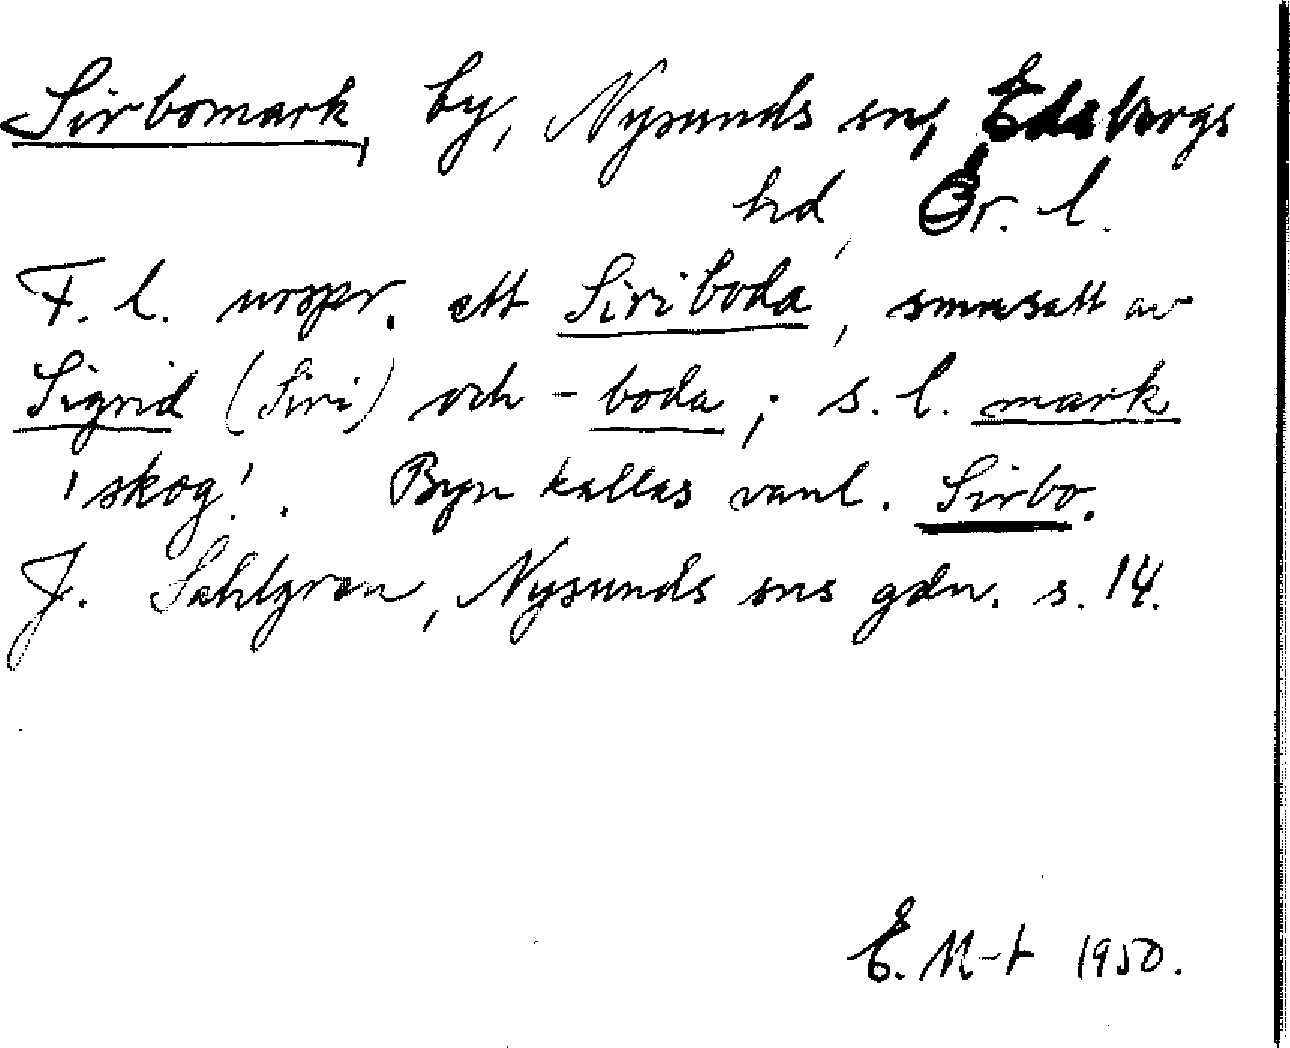 Sirbomark, by, Nysunds sn, Edsbergs
hd, Ör. l.
F. l. urspr. ett Siriboda, smnsatt av
Sigrid (Siri) och -boda; s. l. mark
'skog'. Byn kallas vanl. Sirbo.
J. Sahlgren, Nysunds sns gdn. s. 14.
E. M-t 1950.